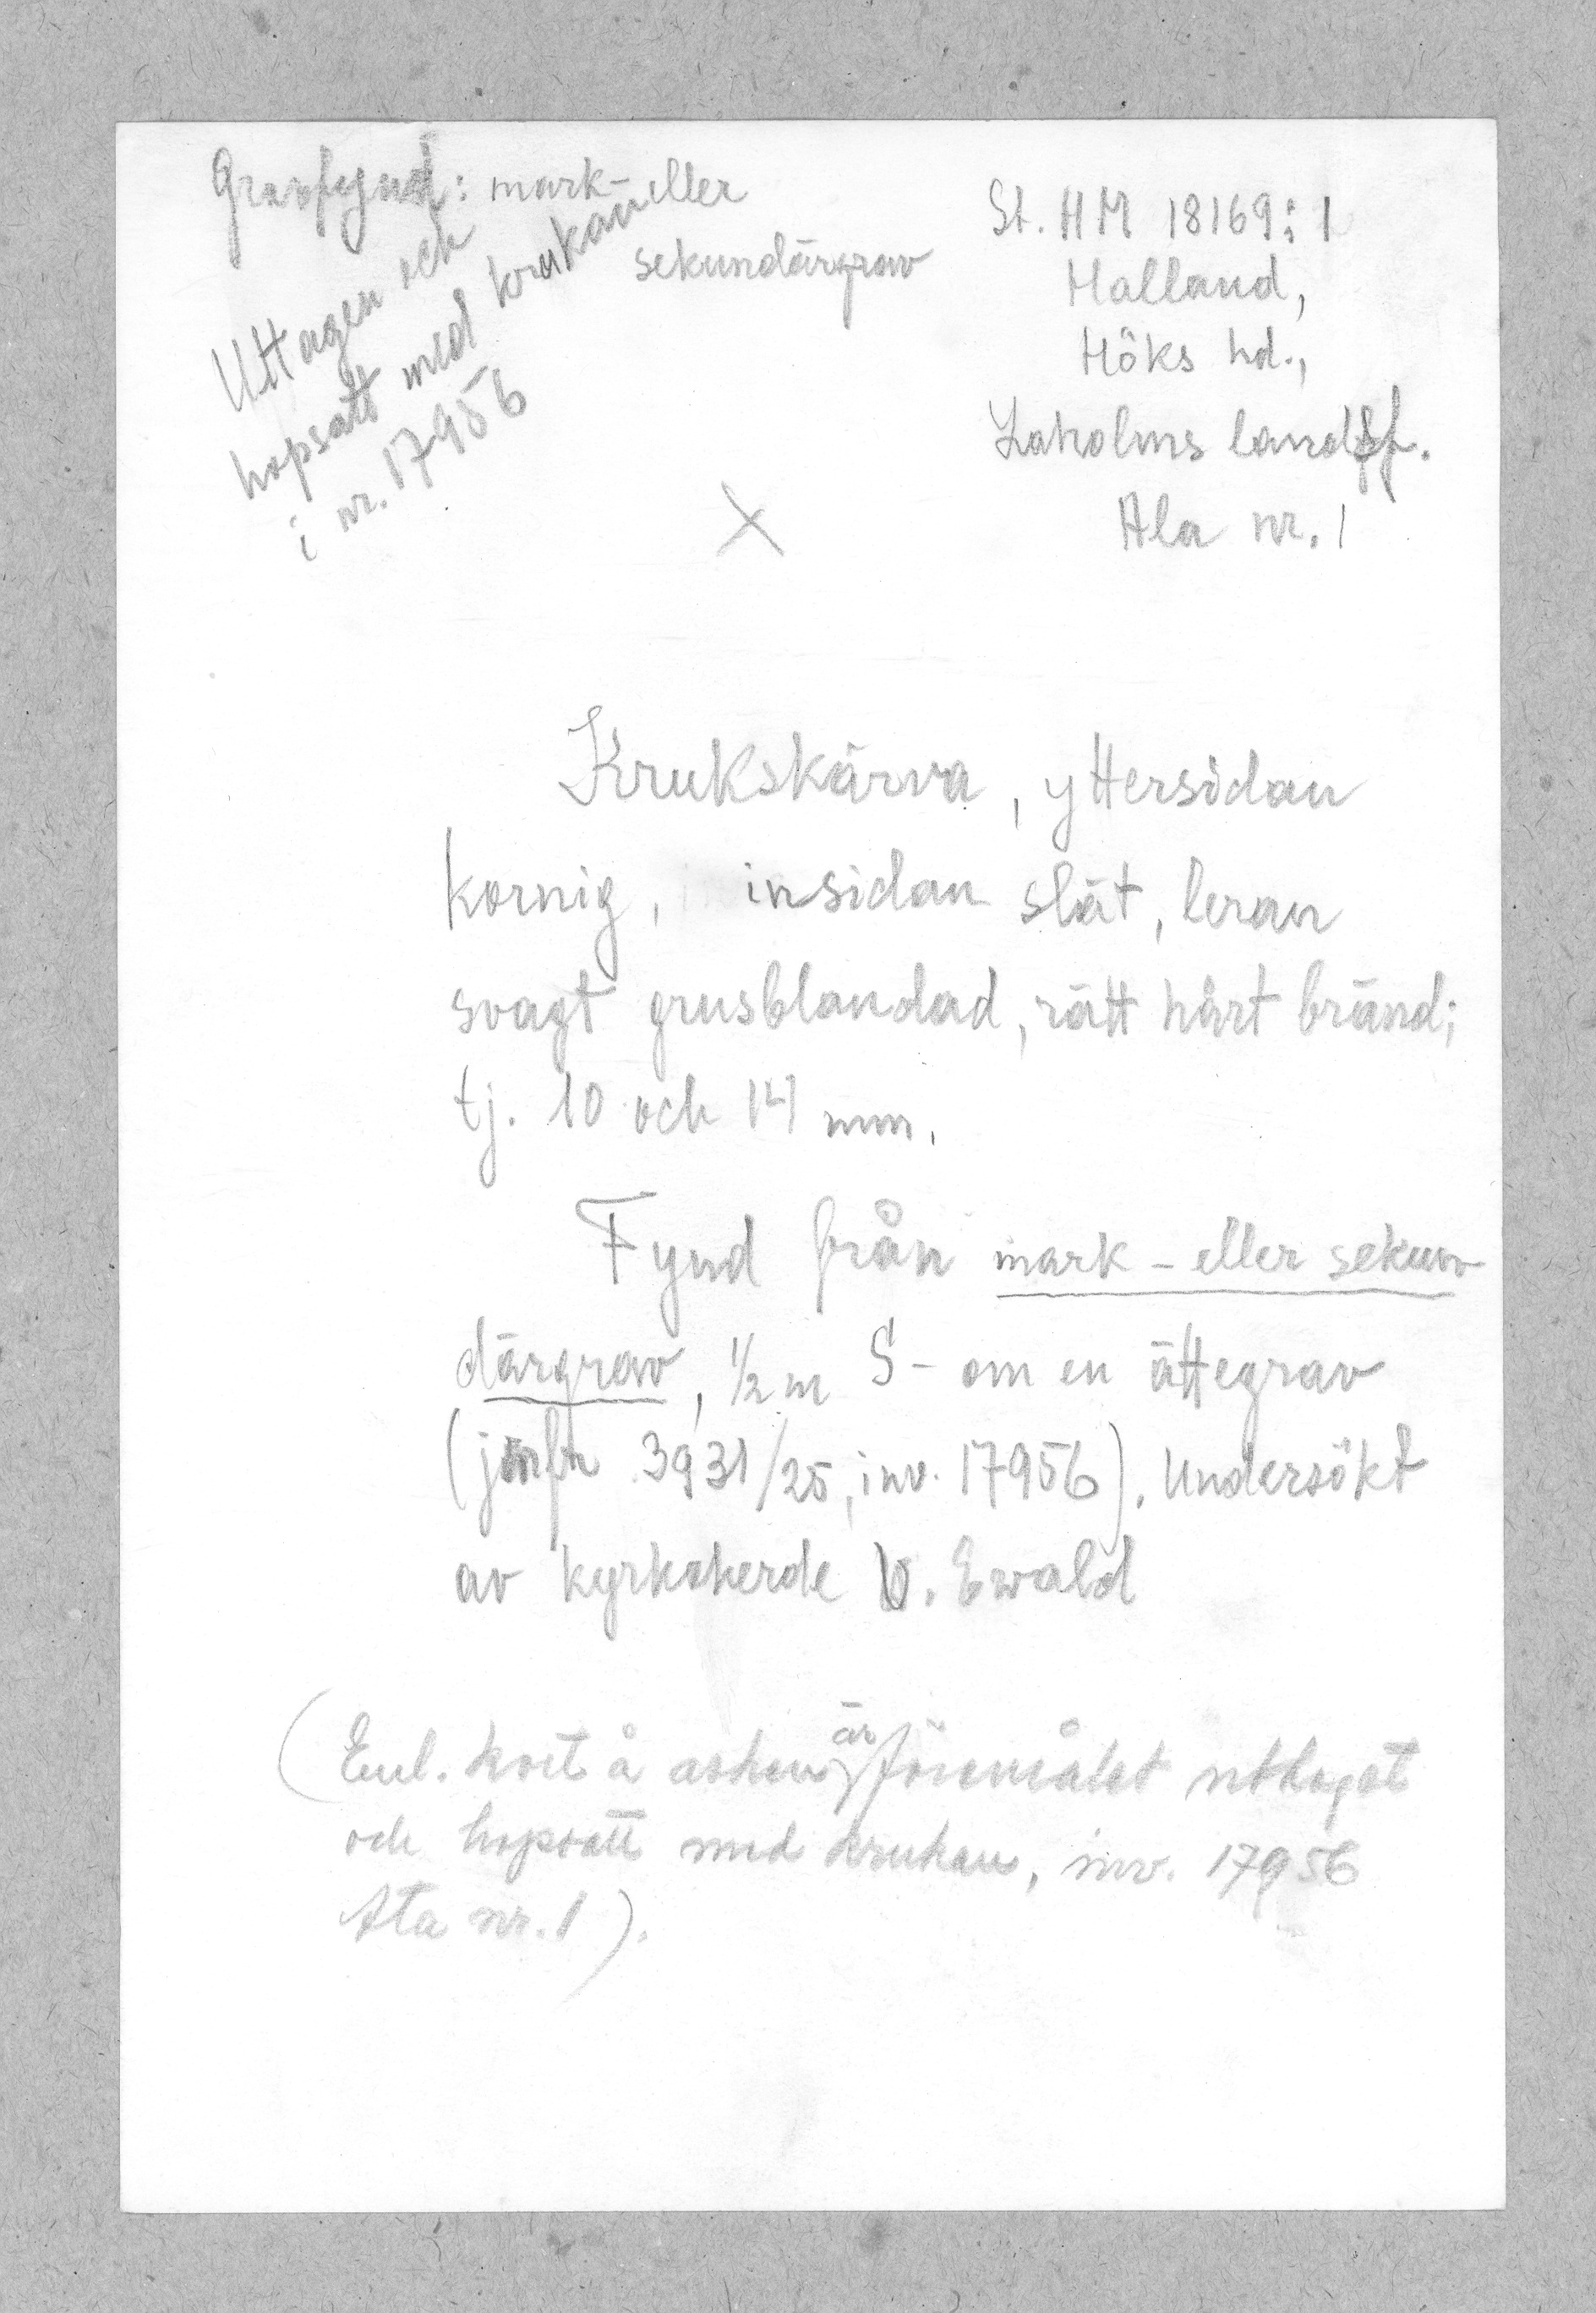 Gravfynd: mark- eller
sekundärgrav
Uttagen och
hopsatt med krukan
i nr. 17956
St. HM 18169:1
Halland,
Höks hd.,
Laholms landsf.
Ala nr. 1
X
Krukskärva, yttersidan
kornig, insidan slät, leran
svagt grusblandad, rätt hårt bränd;
tj. 10 och 14 mm.
Fynd från mark- eller sekun-
därgrav, 1/2 m S- om en ättegrav
(jmfr 3931/25, inv. 17956). Undersökt
av kyrkoherde V. Ewald
(Enl. kort å asken är föremålet uttaget
och hopsatt med krukan, inv. 17956
Ala nr. 1).